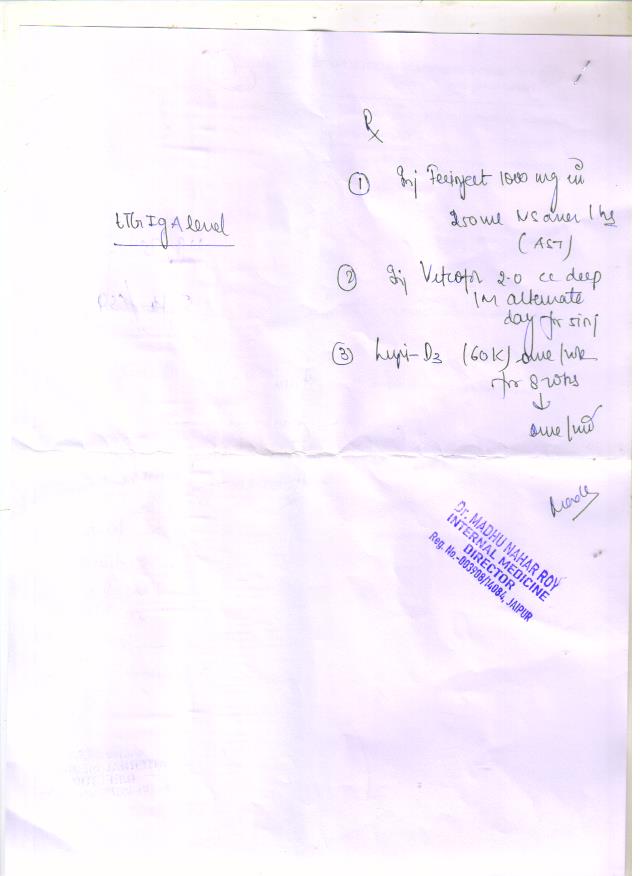 tTG IgA level
Rx
① Inj Ferinject 1000 mg in
250 ml NS over 1 hr
(AST)
② Inj Vitcofol 2.0 cc deep
IM alternate
day for 5 inj
③ Lupi-D3 (60K) once/wk
for 8 wks
↓
once/mth
Dr. MADHU NAHAR ROY
INTERNAL MEDICINE
DIRECTOR
Reg. No.-003908/14084, JAIPUR